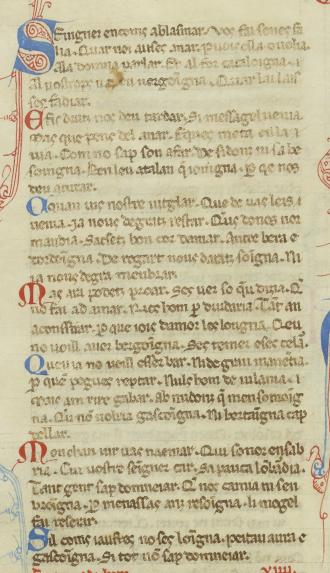 Seingner en coms ablasmar. Vos fai senes fa
lha. Quar noi auses anar. P uois ella o uolia.
Mas domna parlar. Et al for cataloigna. i
al uostrops uergoigna. Quar lai lais
ses fadiar.
E fis drutz nos deu tardar. Si messatgel uenia.
Mas que pens del anar. E ques meta en la u
uia. Com no sap son afar. De sidonz ni sa be
soigna. Ben leu atalan quel ioingna. P qe nos
deu atutar.
Qoran uic nostre iuglar. Que de uas leis i
uenia. Ia nous degratz restar. Que dones nor
mandia. Sacsetz bon cor damar. Antre bera e
dordoigna. De regart nous daratz soigna. Ni
ia nous degra membrar.
Mas ari podetz proar. Ses uer so quo dizia. Q
no fai ad amar. Rics hom p drudaria. Tant an
aconsirar. P que iois damor les loingna. Qeu
no uoill auer bergoingna. Ses temer e ses celar.
Queu ia no uoill esser bar. Ni de gran manentia.
P que pogues reptar. Nuls hom de uilania.
Mais am rire gabar. Ab midonz que men somoig
na. Qu no uolria gascoingna. Ni bertaingna cap
dellar.
Monchan uir uas naemar. Qui sonor ensab
ria. Cui uostre seigner car. Si pauca lonbardia.
Tant gent sap domneiar. Q nos camia ni sen
broingna. P menassas anz resoingna. li mogel
fai reserar.
Sil coms iaufres no ses loingna. peitau aura e
Gascoingna. Si tot non sap domneiar.